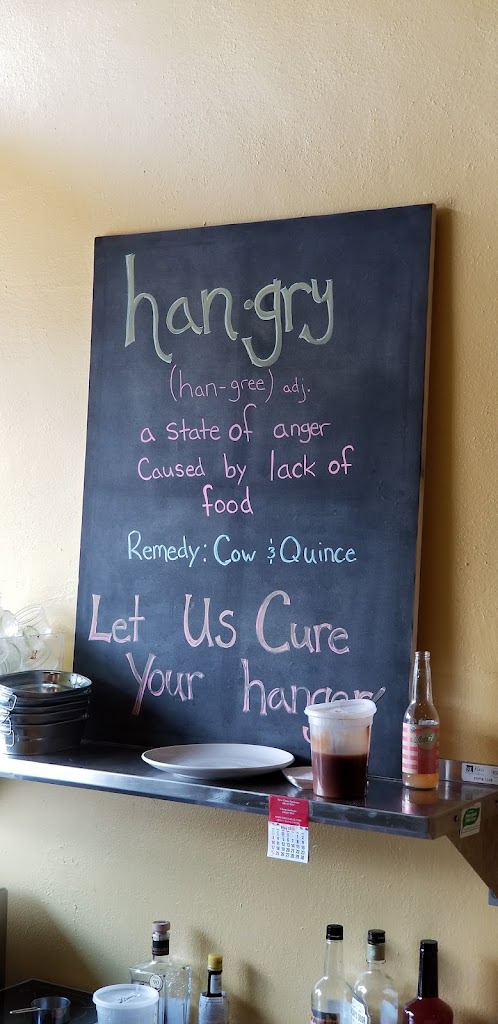 han·gry
(han-gree) adj.
a state of anger
Caused by lack of
food
Remedy: Cow & Quince
Let Us Cure
Your hanger